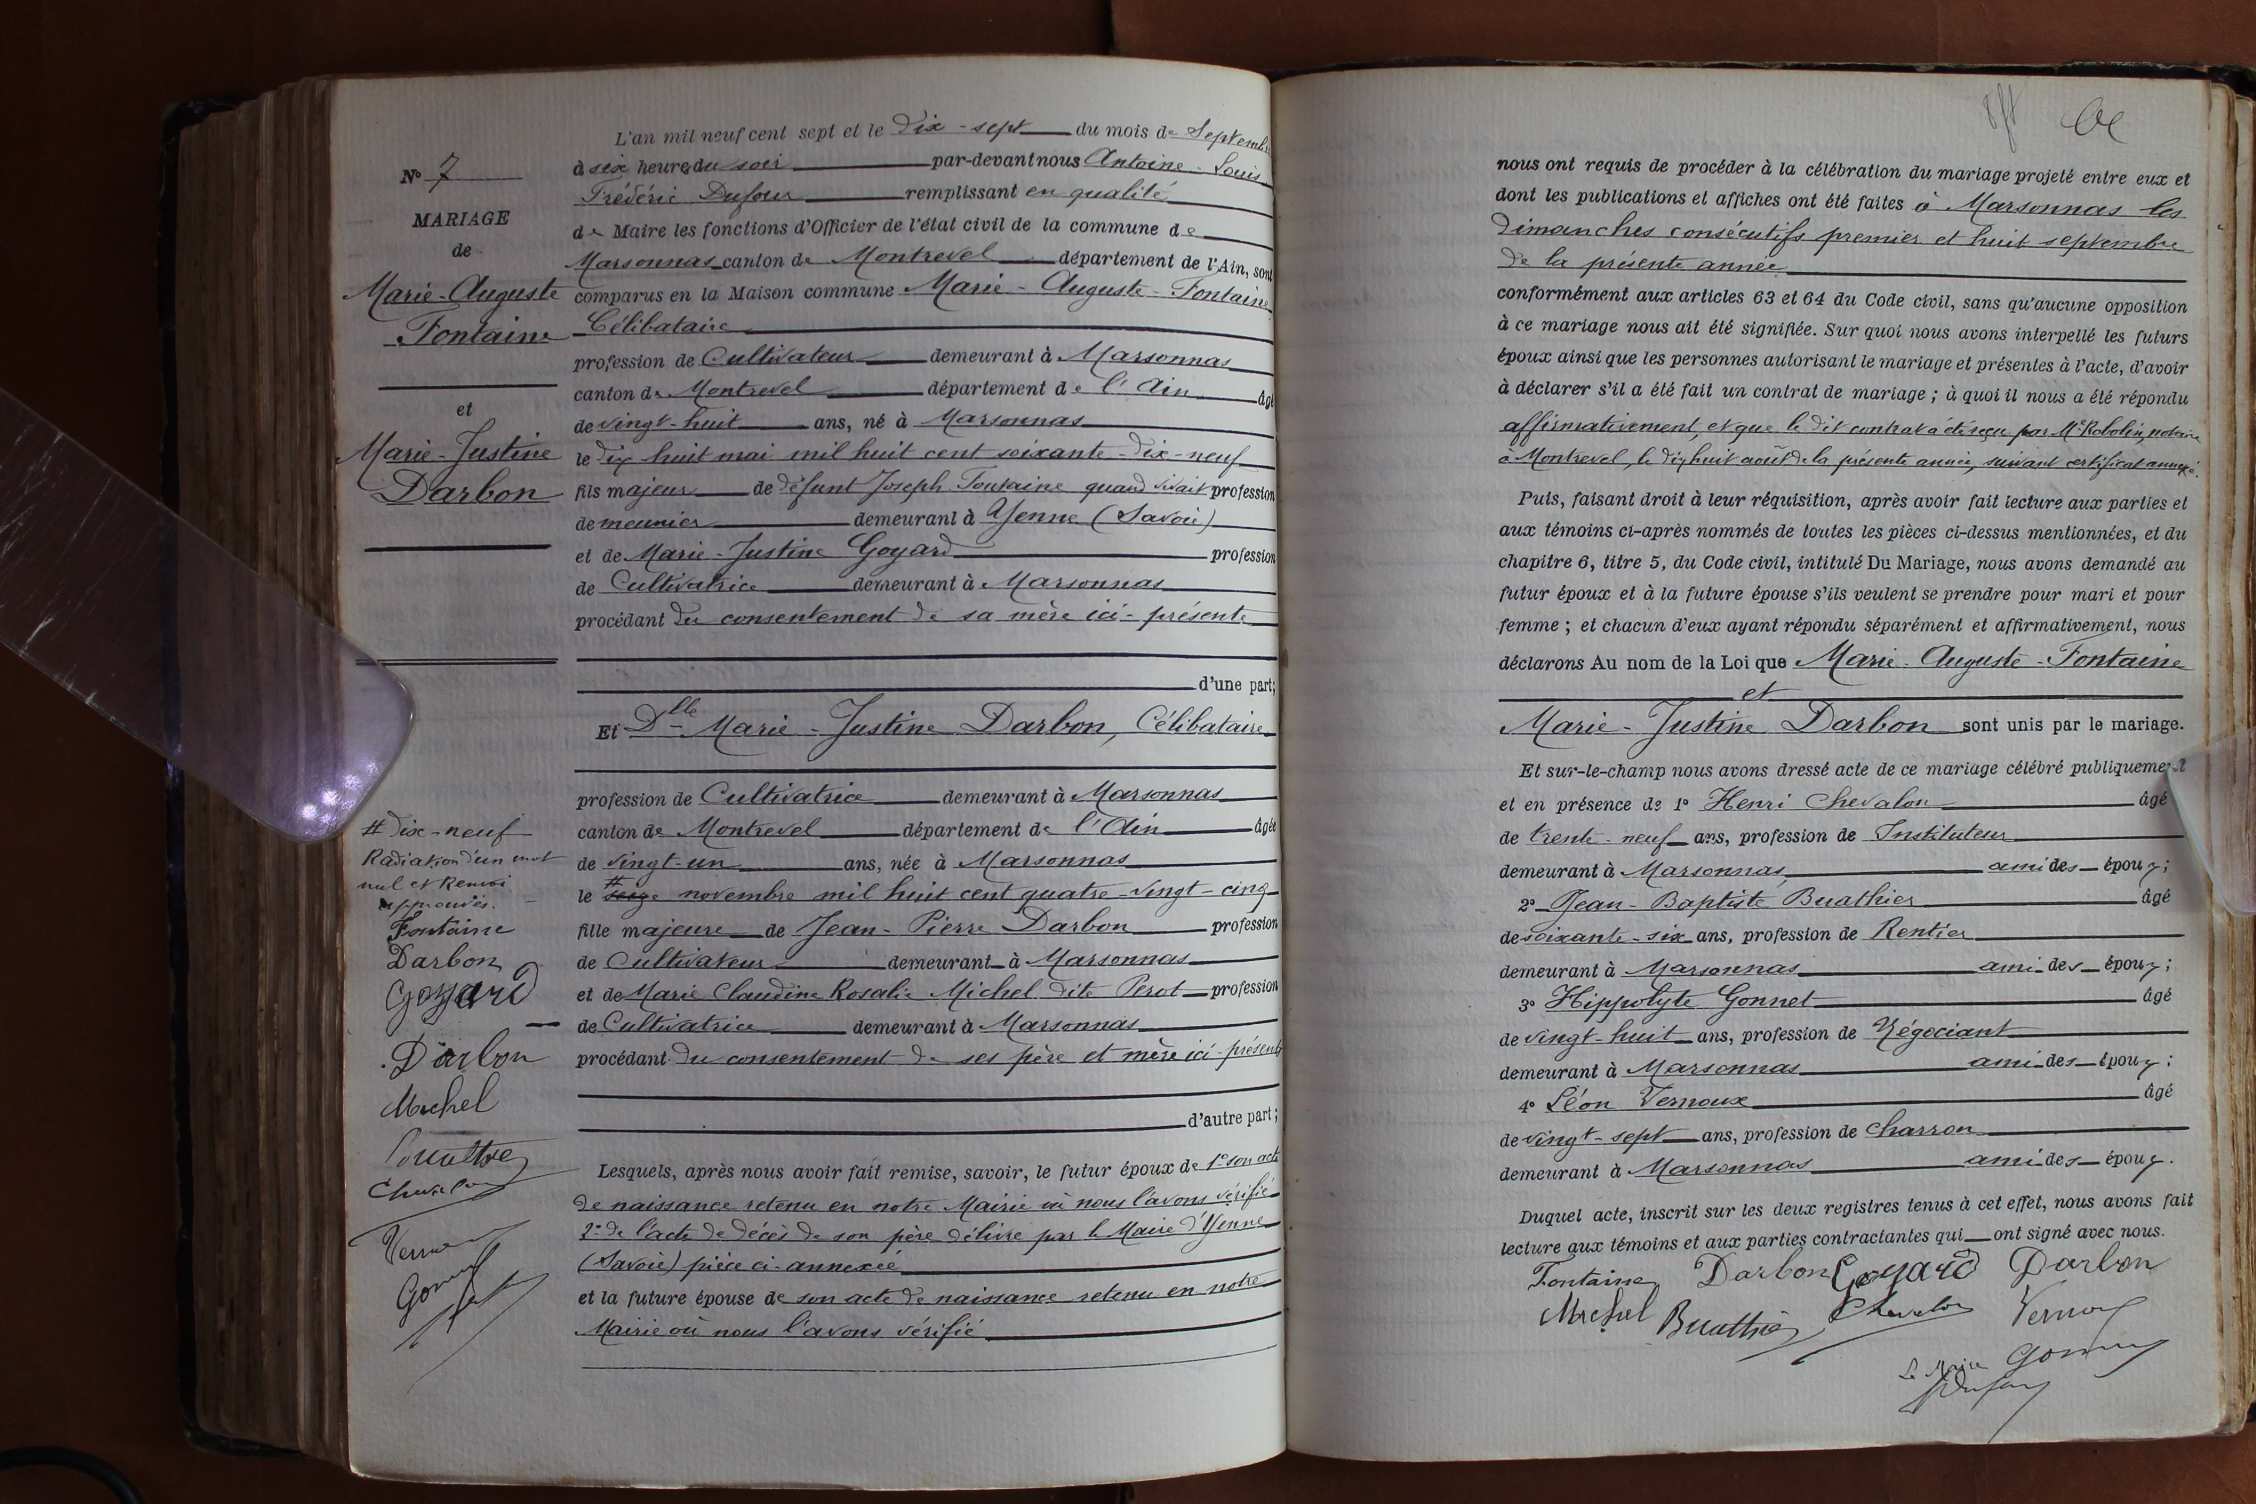 N° 7
MARIAGE
de
Marie-Auguste
Fontaine
et
Marie-Justine
Darbon
# Dix-neuf
Radiation d'un mot
nul et Renvoi
approuvés.
Fontaine
Darbon
Goyard
Darbon
Michel
Buathier
Chevalon
Vernoux
Gonnet
L'an mil neuf cent sept et le Dix-sept du mois de Septembre
à six heures du soir par-devant nous Antoine-Louis
Frédéric Dufour remplissant en qualité
de Maire les fonctions d'Officier de l'état civil de la commune de
Marsonnas canton de Montrevel département de l'Ain, sont
comparus en la Maison commune Marie-Auguste-Fontaine
Célibataire
profession de Cultivateur demeurant à Marsonnas
canton de Montrevel département de l'Ain âgé
de vingt-huit ans, né à Marsonnas
le dix huit mai mil huit cent soixante-dix-neuf
fils majeur de défunt Joseph Fontaine quand vivait profession
de meunier demeurant à Yenne (Savoie)
et de Marie-Justine Goyard profession
de Cultivatrice demeurant à Marsonnas
procédant du consentement de sa mère ici-présente
d'une part;
Et Dlle Marie-Justine Darbon, Célibataire
profession de Cultivatrice demeurant à Marsonnas
canton de Montrevel département de l'Ain âgée
de vingt-un ans, née à Marsonnas
le # seize novembre mil huit cent quatre-vingt-cinq
fille majeure de Jean-Pierre Darbon profession
de Cultivateur demeurant à Marsonnas
et de Marie Claudine Rosalie Michel dite Perot profession
de Cultivatrice demeurant à Marsonnas
procédant du consentement de ses père et mère ici-présents
d'autre part;
Lesquels, après nous avoir fait remise, savoir, le futur époux de 1° son acte
de naissance retenu en notre Mairie où nous l'avons vérifié
2° de l'acte de décès de son père délivré par le Maire d'Yenne
(Savoie) pièce ci-annexée
et la future épouse de son acte de naissance retenu en notre
Mairie où nous l'avons vérifié
nous ont requis de procéder à la célébration du mariage projeté entre eux et
dont les publications et affiches ont été faites à Marsonnas les
dimanches consécutifs premier et huit septembre
de la présente année
conformément aux articles 63 et 64 du Code civil, sans qu'aucune opposition
à ce mariage nous ait été signifiée. Sur quoi nous avons interpellé les futurs
époux ainsi que les personnes autorisant le mariage et présentes à l'acte, d'avoir
à déclarer s'il a été fait un contrat de mariage ; à quoi il nous a été répondu
affirmativement, et que le dit contrat a été reçu par Me Robolin, notaire
à Montrevel, le dix huit août de la présente année, suivant certificat annexé.
Puis, faisant droit à leur réquisition, après avoir fait lecture aux parties et
aux témoins ci-après nommés de toutes les pièces ci-dessus mentionnées, et du
chapitre 6, titre 5, du Code civil, intitulé Du Mariage, nous avons demandé au
futur époux et à la future épouse s'ils veulent se prendre pour mari et pour
femme ; et chacun d'eux ayant répondu séparément et affirmativement, nous
déclarons Au nom de la Loi que Marie-Auguste-Fontaine
et
Marie-Justine Darbon sont unis par le mariage.
Et sur-le-champ nous avons dressé acte de ce mariage célébré publiquement
et en présence de 1° Henri Chevalon âgé
de trente-neuf ans, profession de Instituteur
demeurant à Marsonnas, ami des époux;
2° Jean-Baptiste Buathier âgé
de soixante-six ans, profession de Rentier
demeurant à Marsonnas ami des époux;
3° Hippolyte Gonnet âgé
de vingt-huit ans, profession de Négociant
demeurant à Marsonnas ami des époux;
4° Léon Vernoux âgé
de vingt-sept ans, profession de charron
demeurant à Marsonnas ami des époux.
Duquel acte, inscrit sur les deux registres tenus à cet effet, nous avons fait
lecture aux témoins et aux parties contractantes qui ont signé avec nous.
Fontaine Darbon Goyard Darbon
Michel Buathier Chevalon Vernoux
Le Maire Gonnet
Dufour